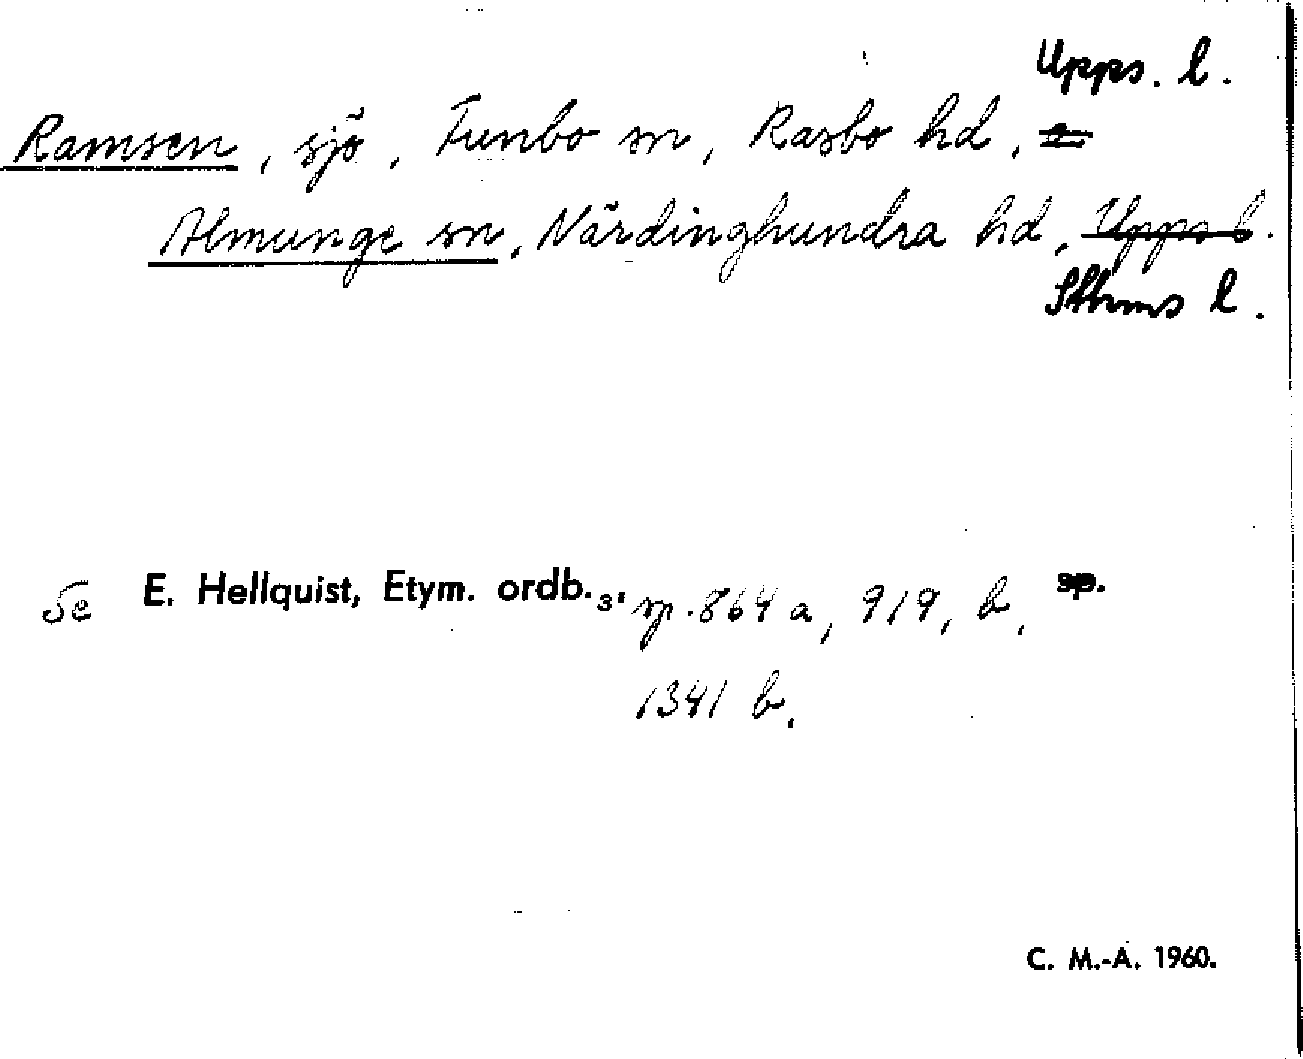 Upps. l.
Ramsen, sjö, Funbo sn, Rasbo hd,
Almunge sn, Närdinghundra hd, Upps l.
Sthms l.
Se E. Hellquist, Etym. ordb.3, sp. 864 a, 919, b, sp.
1341 b.
C. M.-A. 1960.